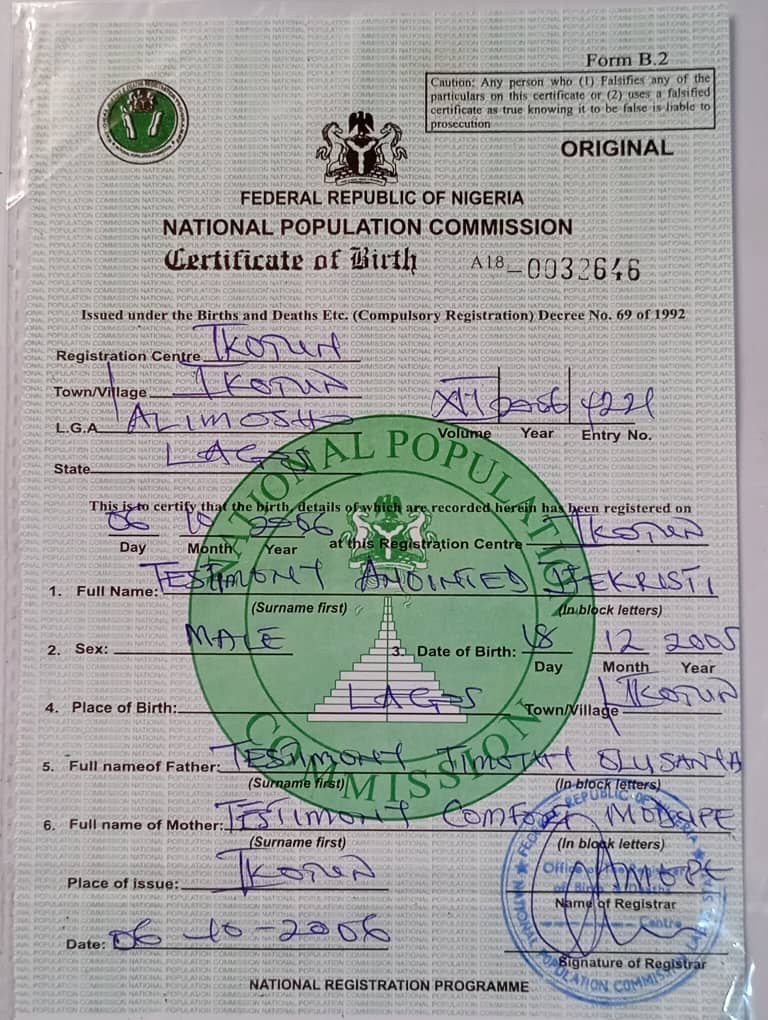 Form B.2
Caution: Any person who (1) Falsifies any of the
particulars on this certificate or (2) uses a falsified
certificate as true knowing it to be false is liable to
prosecution
ORIGINAL
FEDERAL REPUBLIC OF NIGERIA
NATIONAL POPULATION COMMISSION
Certificate of Birth A18-0032646
Issued under the Births and Deaths Etc. (Compulsory Registration) Decree No. 69 of 1992
Registration Centre IKOTUN
Town/Village IKOTUN
L.G.A. ALIMOSHO
XII 2006 4221
Volume Year Entry No.
State LAGOS
This is to certify that the birth, details of which are recorded herein has been registered on
06 10 2006 at this Registration Centre IKOTUN
Day Month Year
1. Full Name: TESTIMONY ANOINTED IFEKRISTI
(Surname first) (In block letters)
2. Sex: MALE 3. Date of Birth: 18 12 2005
Day Month Year
4. Place of Birth: LAGOS Town/Village IKOTUN
5. Full name of Father: TESTIMONY TIMOTHY OLUSANYA
(Surname first) (In block letters)
6. Full name of Mother: TESTIMONY COMFORT MODUPE
(Surname first) (In block letters)
Place of issue: IKOTUN
Name of Registrar
Date: 06-10-2006
Signature of Registrar
NATIONAL REGISTRATION PROGRAMME
NATIONAL POPULATION
COMMISSION